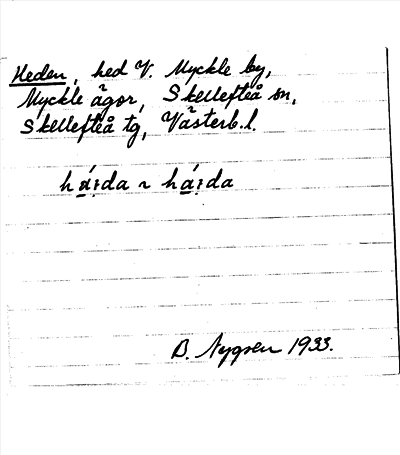 Heden, hed V. Myckle by,
Myckle ägor, Skellefteå sn,
Skellefteå tg, Västerb. l.
há̱꞉da ~ há̱꞉da
B. Nygren 1933.